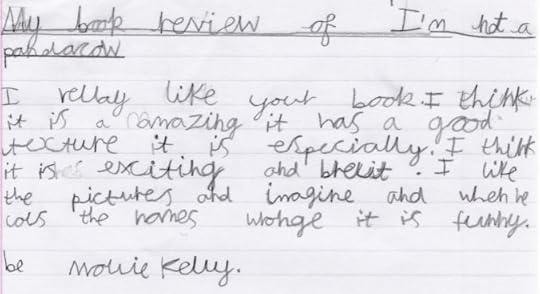 My book review of I'm not a
pandacow
I rellay like your book. I think
it is a amazing it has a good
texture it is especially. I think
it is exciting and brelit. I like
the pictures and imagine and when he
cols the names wronge it is funny.
be Mollie Kelly.